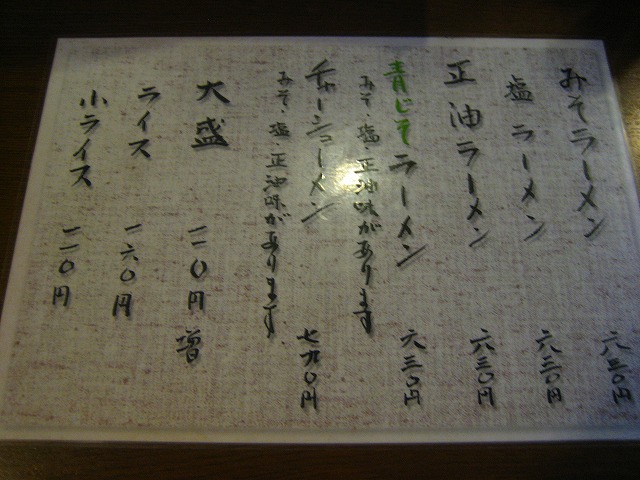 みそラーメン 六三〇円
塩ラーメン 六三〇円
正油ラーメン 六三〇円
青じそラーメン 六三〇円
みそ・塩・正油味があります
チャーシューメン 七九〇円
みそ・塩・正油味があります
大盛 一一〇円増
ライス 一六〇円
小ライス 一一〇円